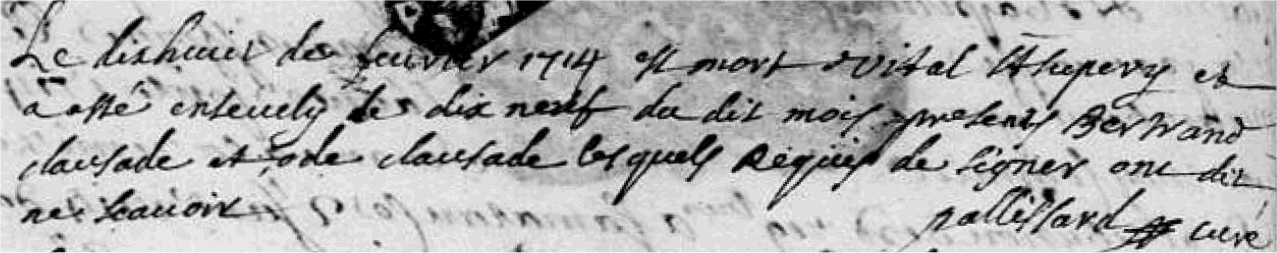 Le dixhuit de feuvrier 1714 est mort vital et
a esté enseuely le dix neuf du dit mois presents Bertrand
clausade et ode clausade lesquels requis de signer ont dit
ne scauoir pallissard curé